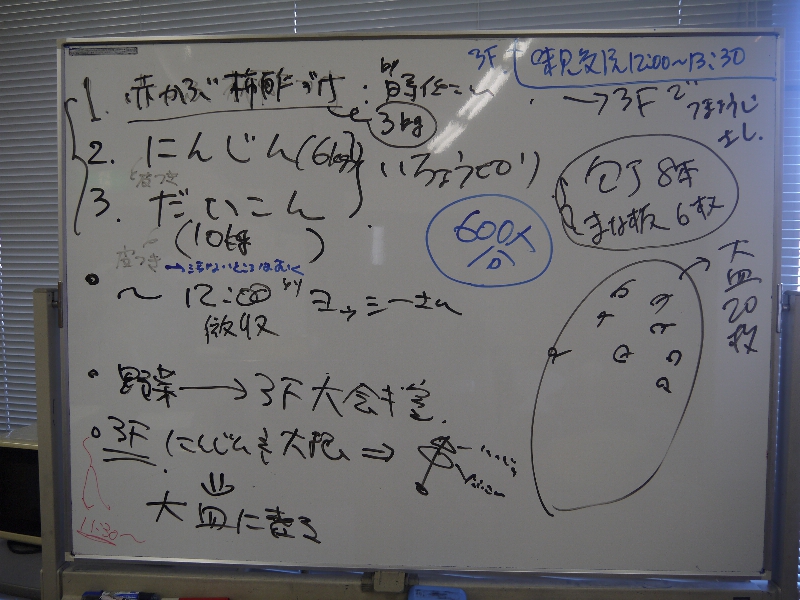 3F 味見会場 12:00〜13:30
1. 赤かぶ柿酢づけ : by
3kg
→ 3F で つまようじ
2. にんじん (6kg) いちょうぎり
皮つき
3. だいこん
(10kg)
皮つき
600人分
包丁 8本
まな板 6枚
大皿20枚
• 〜12:00 より ヨッシーさん
徴収
• 野菜 → 3F 大会議室
• 3F にんじんを大根 ⇒
11:30〜
⇓
大皿に盛る